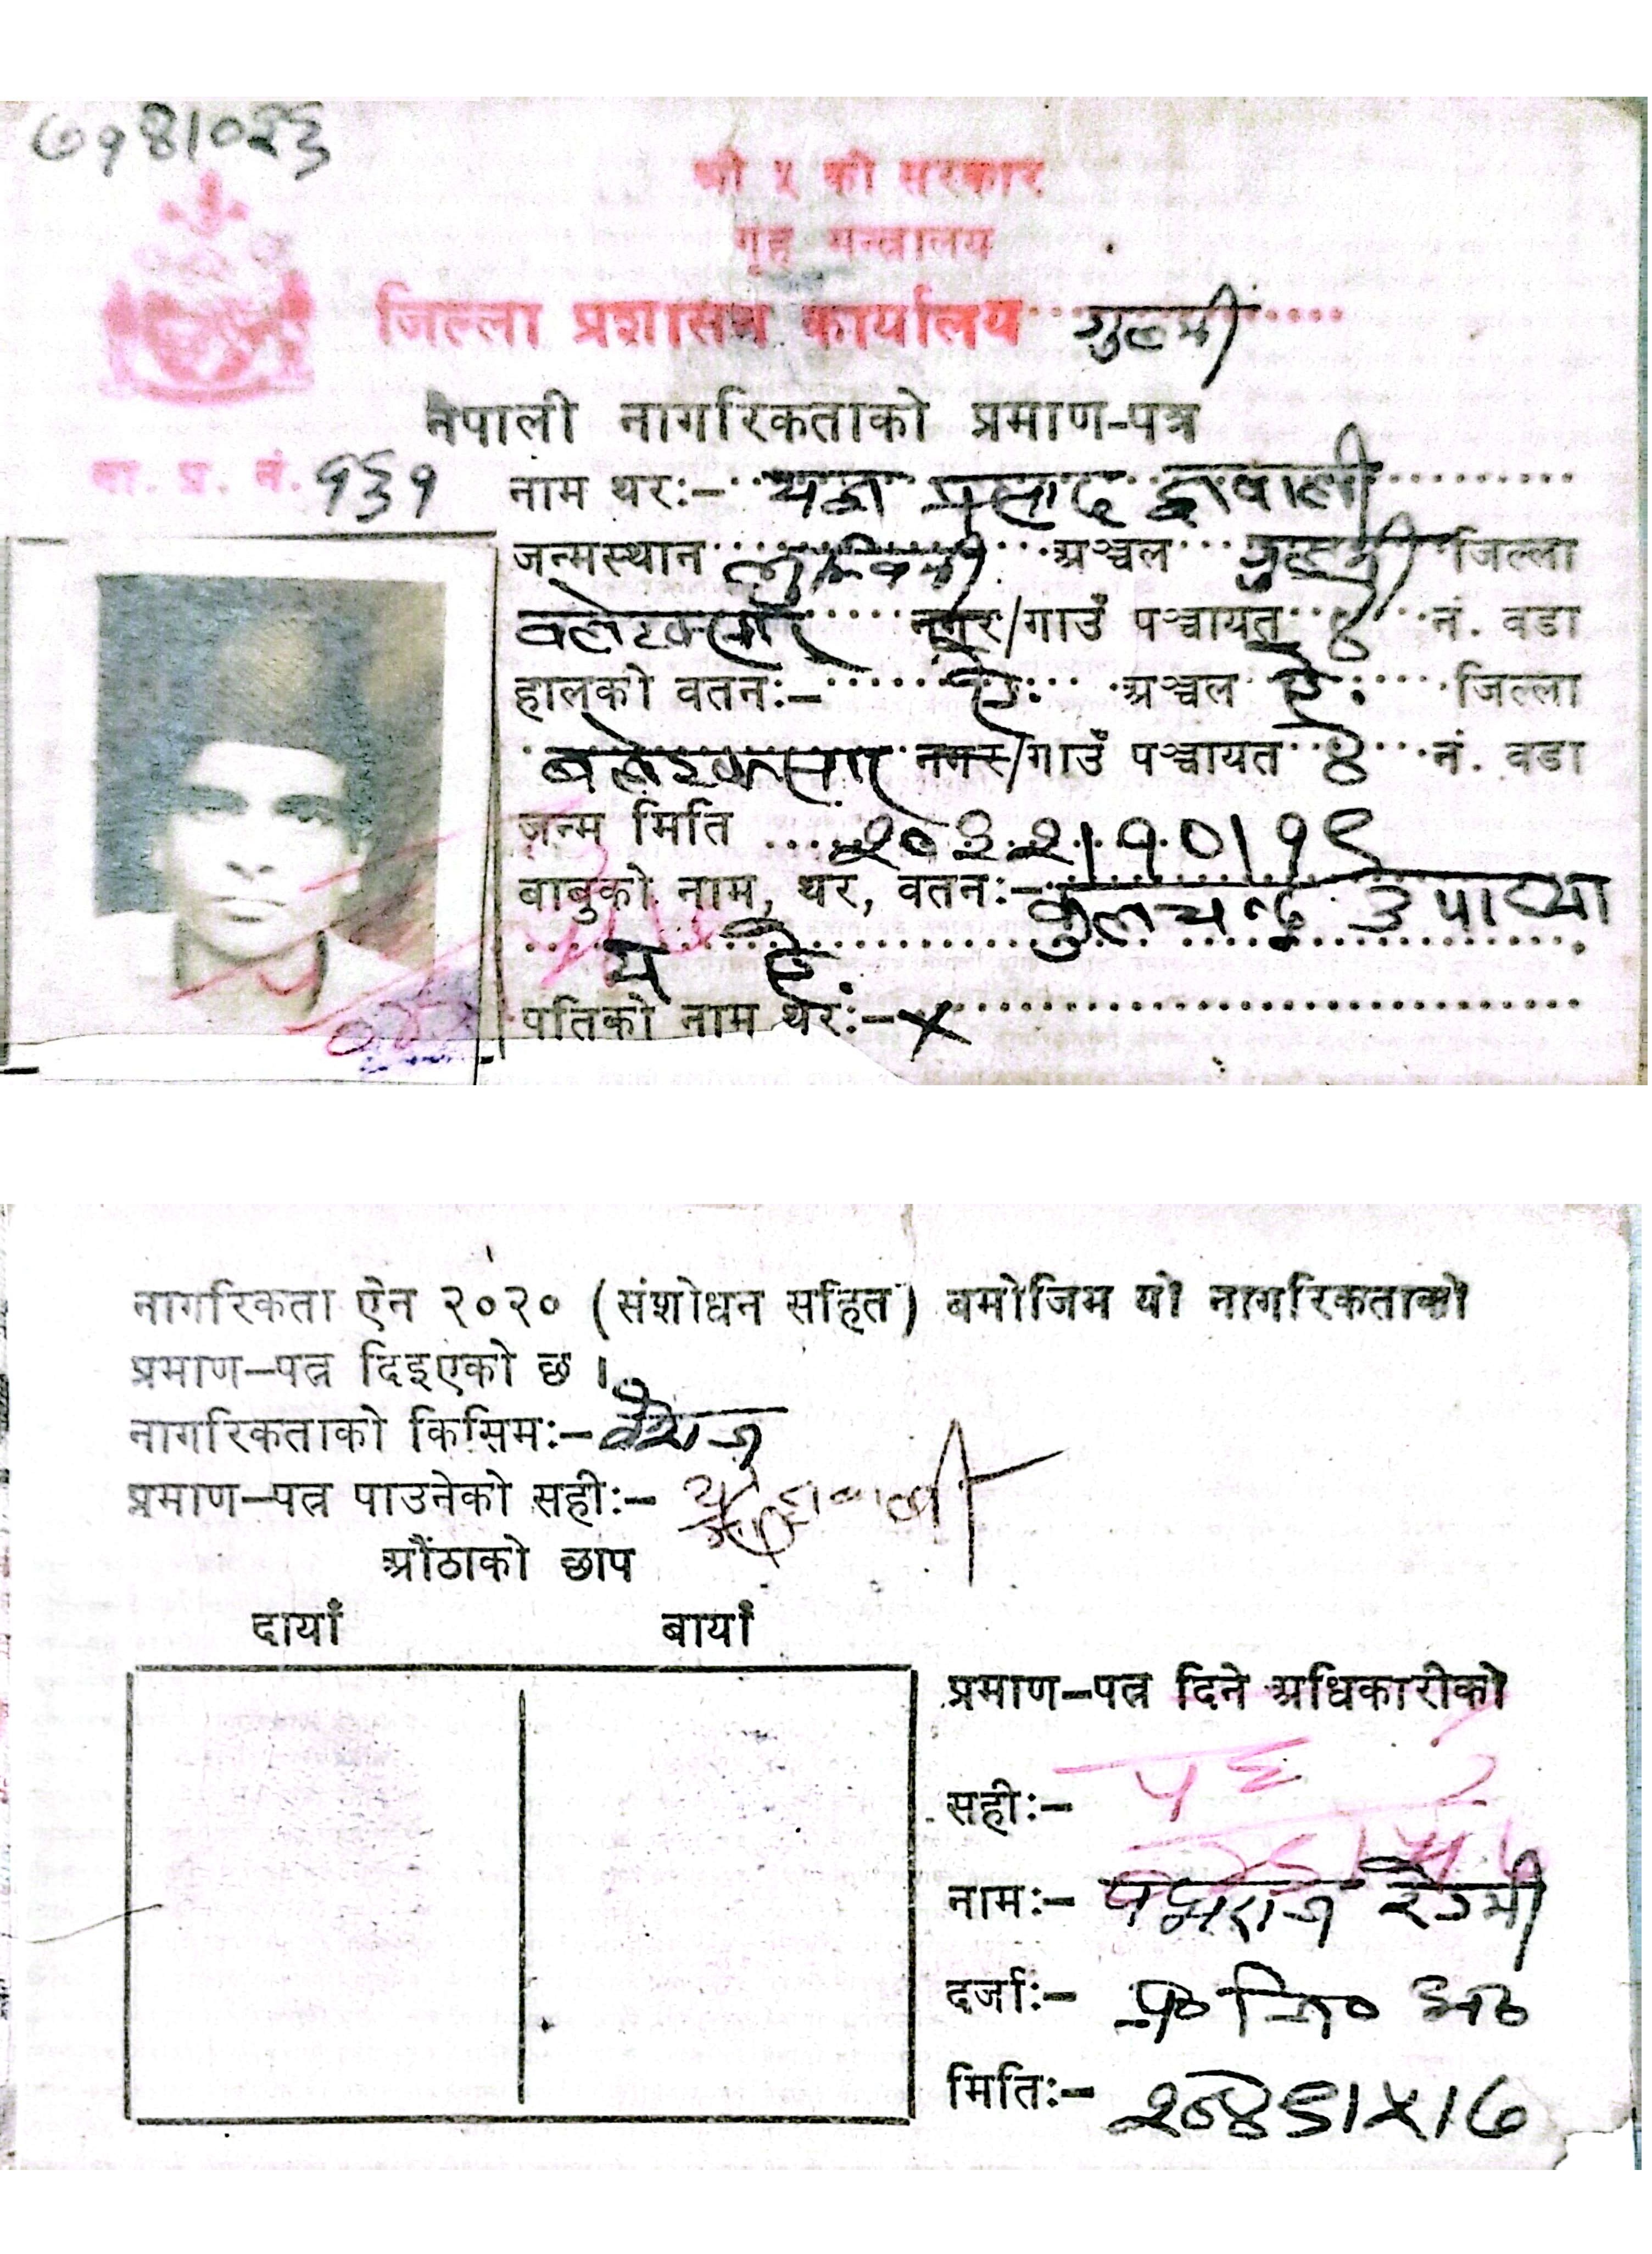 ७१४।०२३
श्री ५ को सरकार
गृह मन्त्रालय
जिल्ला प्रशासन कार्यालय गुल्मी
नेपाली नागरिकताको प्रमाण-पत्र
ना. प्र. नं. १३१
नाम थर:- यज्ञ प्रसाद ज्ञवाली
जन्मस्थान लुम्विनी अञ्चल गुल्मी जिल्ला
नगर/गाउँ पञ्चायत ४ नं. वडा
हालको वतन:- ऐ. अञ्चल ऐ. जिल्ला
नगर/गाउँ पञ्चायत ४ नं. वडा
जन्म मिति २०२२।१०।१९
बाबुको नाम, थर, वतन:- कुलचन्द्र उपाध्या
य ऐ.
पतिको नाम थर:- ×
नागरिकता ऐन २०२० (संशोधन सहित) बमोजिम यो नागरिकताको
प्रमाण-पत्र दिइएको छ ।
नागरिकताको किसिम:- वंशज
प्रमाण-पत्र पाउनेको सही:-
औंठाको छाप
दायाँ बायाँ
प्रमाण-पत्र दिने अधिकारीको
सही:-
नाम:- पद्मराज रेग्मी
दर्जा:- प्र० जि० अ०
मिति:- २०४६।५।७